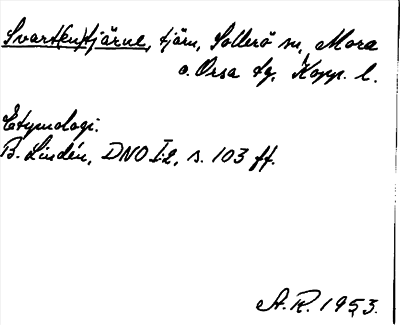 Svart(en)tjärne, tjärn, Sollerö sn, Mora
o. Orsa tg, Kopp. l.
Etymologi:
B. Lindén, DNO I:2, s. 103 ff.
A.R. 1953.